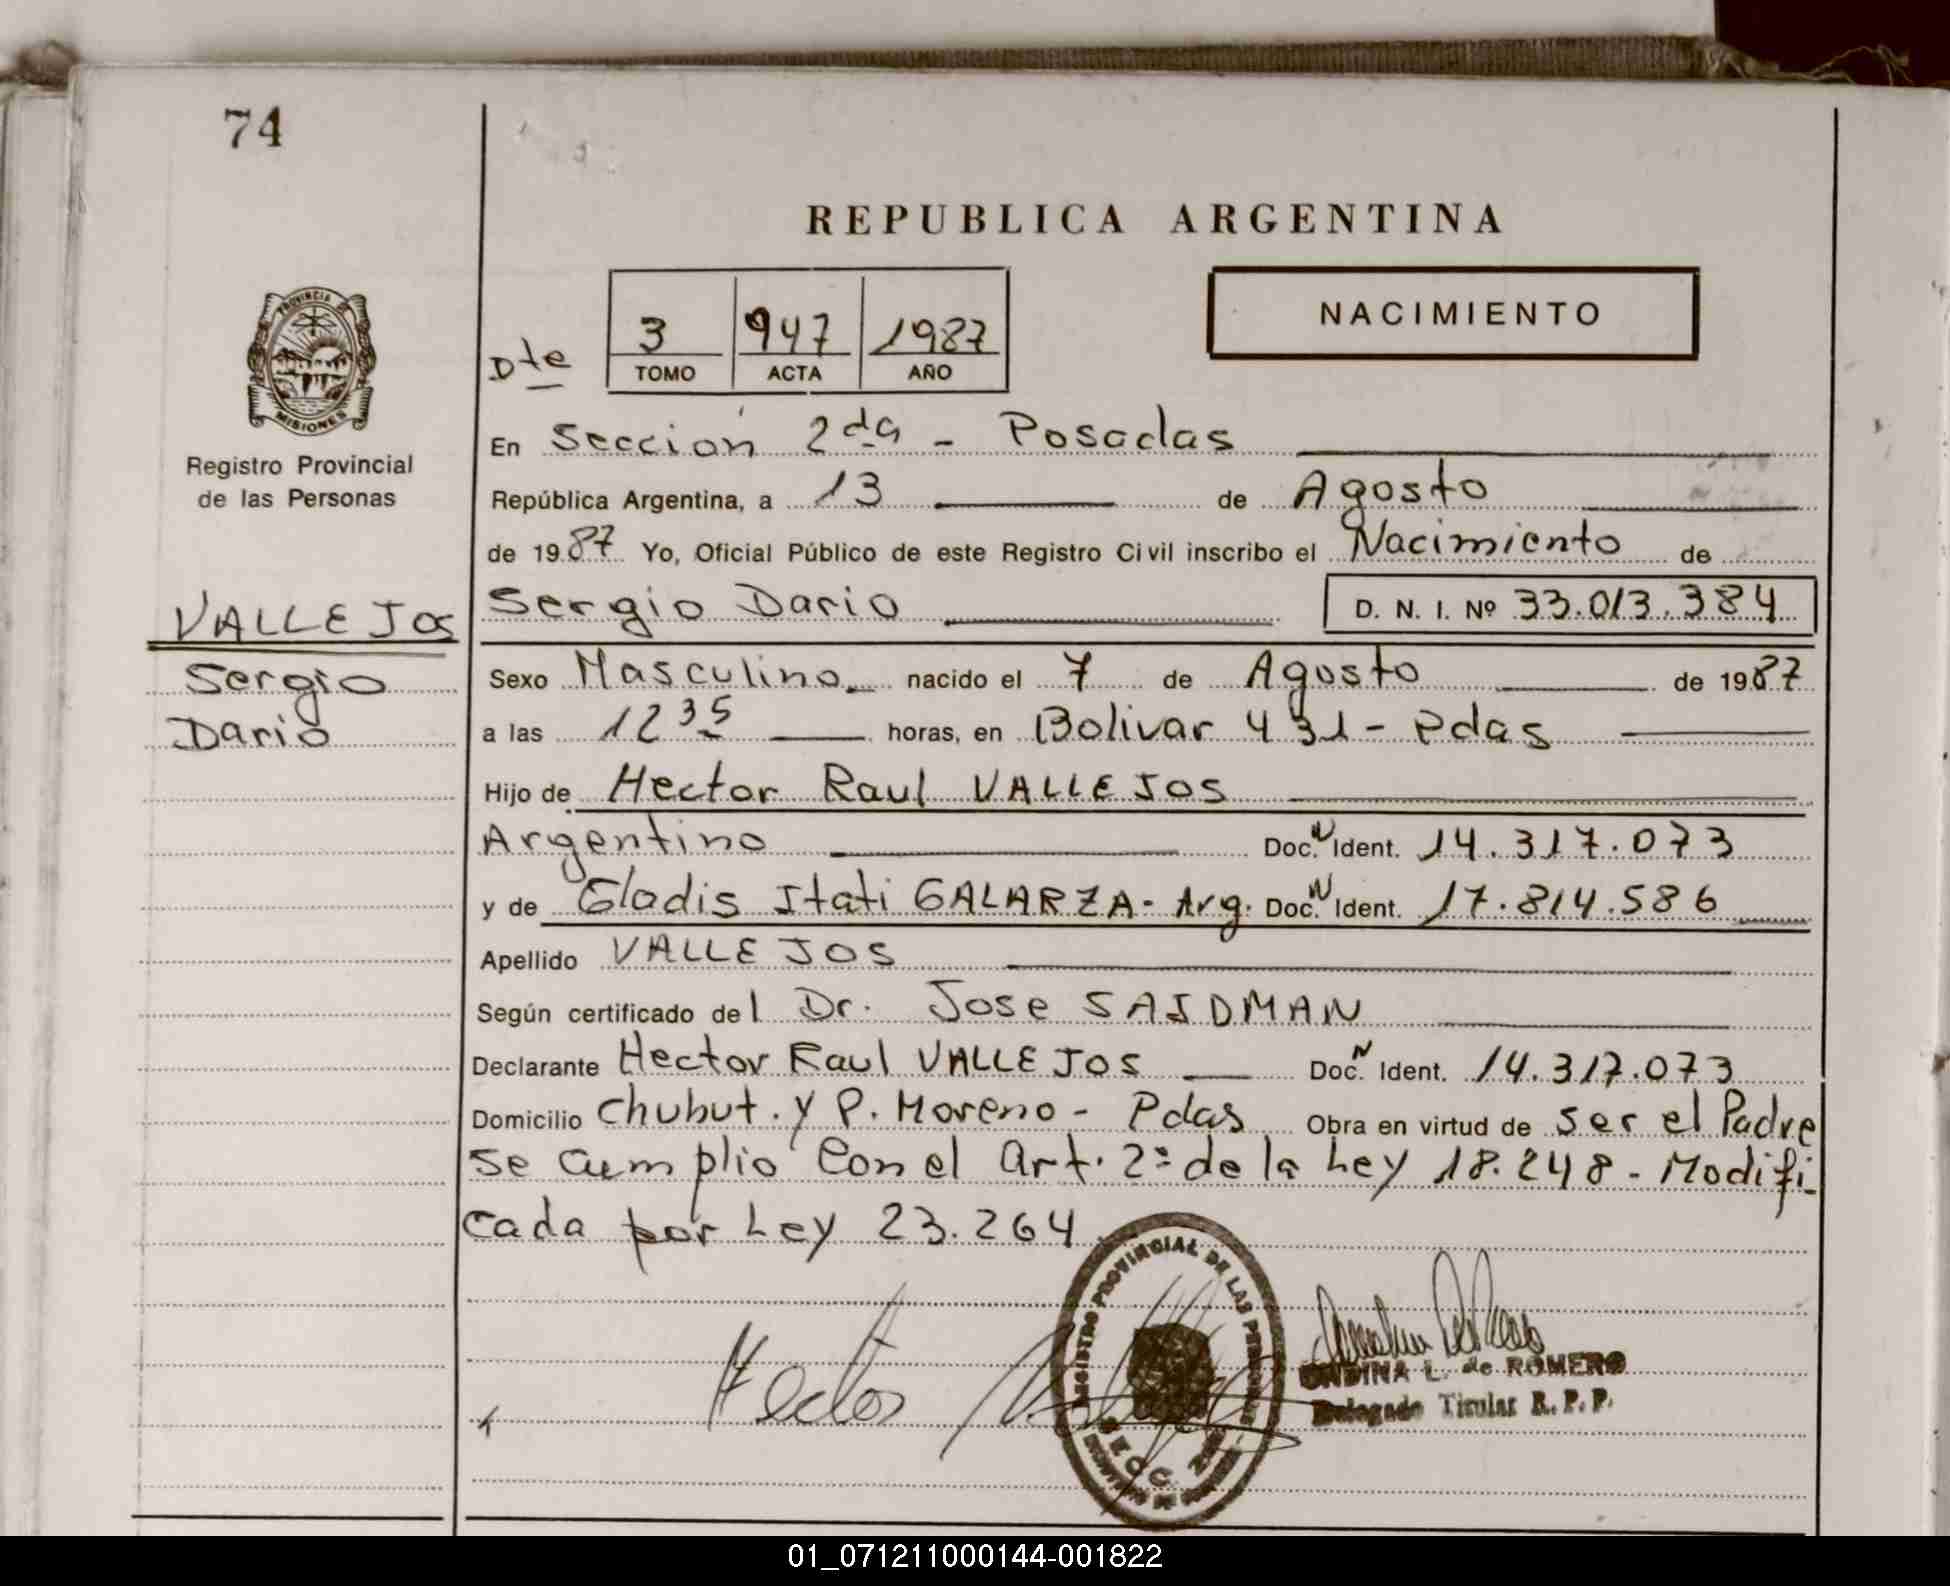 74
REPUBLICA ARGENTINA
NACIMIENTO
Dte
3 947 1987
TOMO ACTA AÑO
PROVINCIA
MISIONES
Registro Provincial
de las Personas
VALLEJOS
Sergio
Dario
En Sección 2da - Posadas
República Argentina, a 13 de Agosto
de 1987 Yo, Oficial Público de este Registro Civil inscribo el Nacimiento de
Sergio Dario D. N. I. Nº 33.013.384
Sexo Masculino nacido el 7 de Agosto de 1987
a las 12 35 horas, en Bolivar 431 - Pdas
Hijo de Hector Raul VALLEJOS
Argentino Doc. N Ident. 14.317.073
y de Gladis Itati GALARZA - Arg. Doc. N Ident. 17.814.586
Apellido VALLEJOS
Según certificado del Dr. Jose SAIDMAN
Declarante Hector Raul VALLEJOS Doc. N Ident. 14.317.073
Domicilio Chubut. y P. Moreno - Pdas Obra en virtud de ser el Padre
se cumplio con el Art. 2º de la Ley 18.248 - Modifi
cada por Ley 23.264
REGISTRO PROVINCIAL DE LAS PERSONAS
SECC.
Hector
ONDINA L. de ROMERO
Delegado Titular R. P. P.
01_071211000144-001822